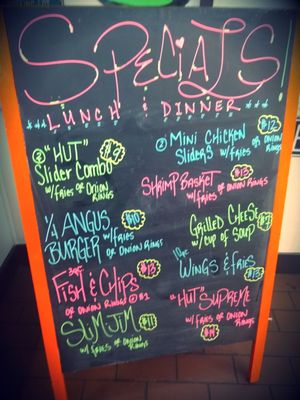 SPECIALS
LUNCH & DINNER
② "HUT"
Slider Combo
w/fries or Onion
Rings
$9
② Mini Chicken
Sliders w/fries
or Onion Rings
$12
Shrimp Basket
w/fries or Onion Rings
$13
1/4 Angus
Burger w/fries
or Onion Rings
$10
Grilled Cheese
w/ cup of soup
$7
3pc
Fish & Chips
or Onion Rings
$13
Wings & Fries
$13
Slim Jim
w/ fries or Onion
Rings
$11
"Hut" Supreme
w/ fries or Onion
Rings
$14